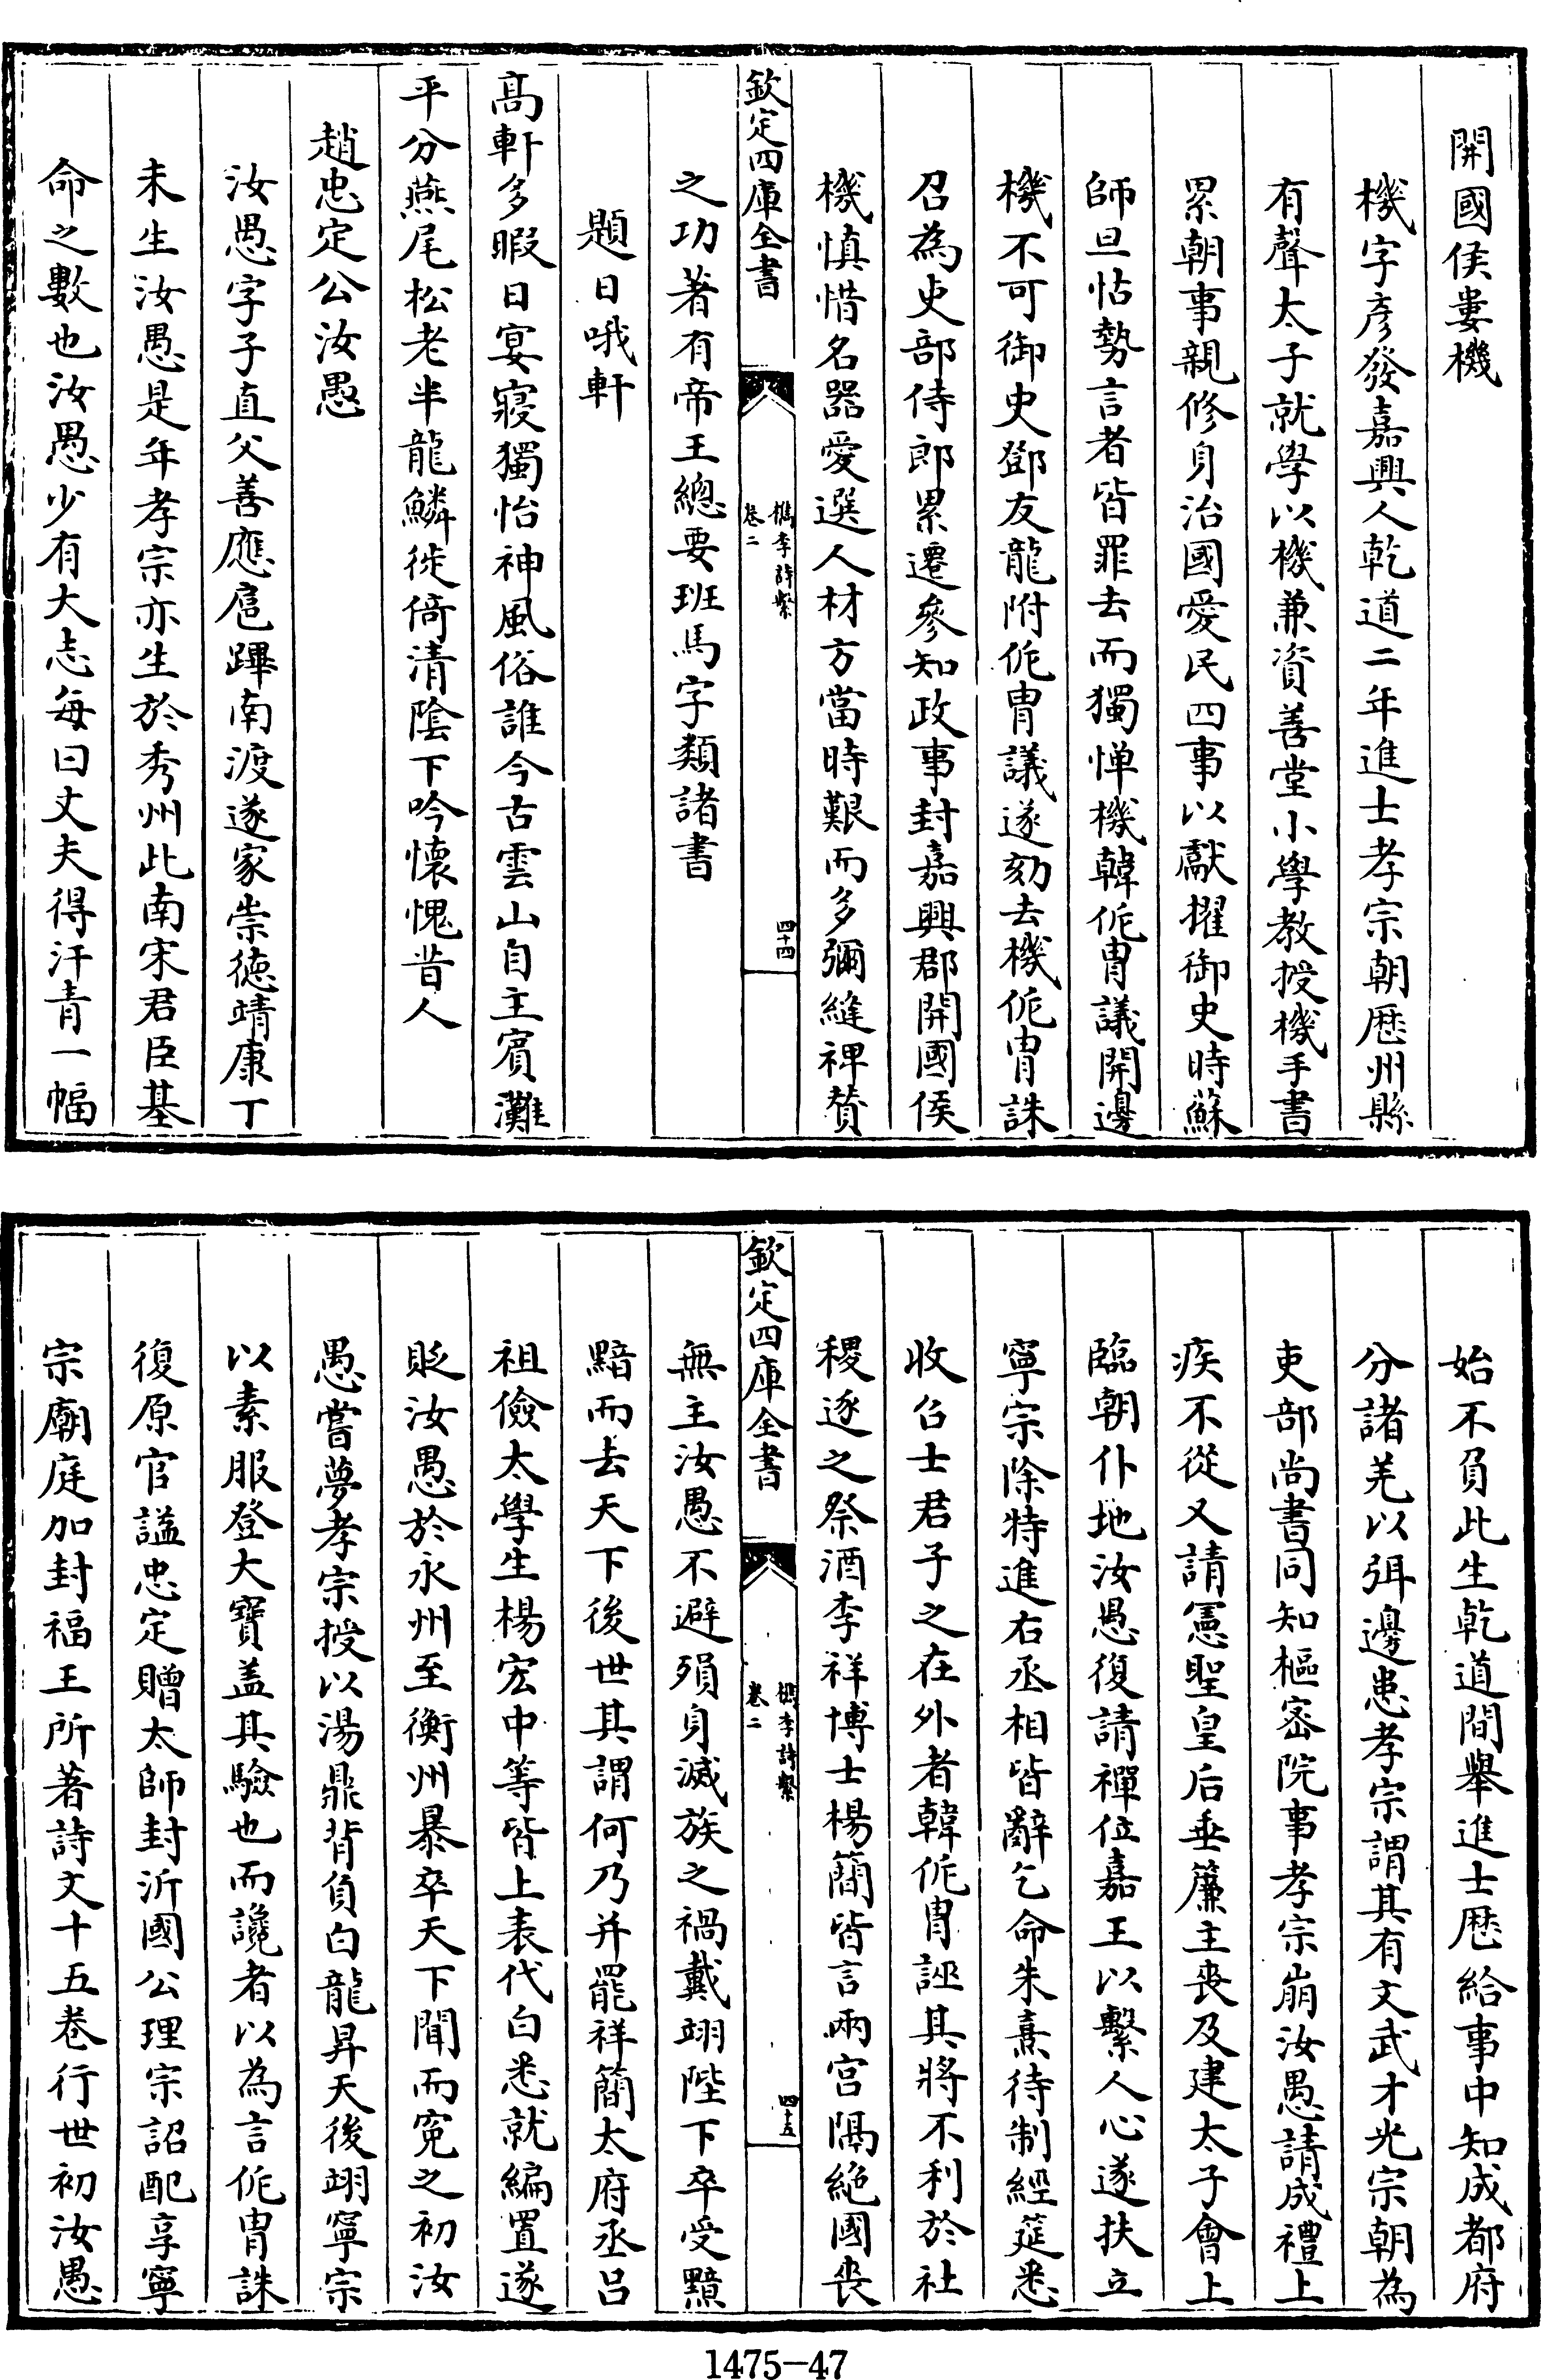 開國侯婁機
機字彦發嘉興人乾道二年進士孝宗朝歴州縣
有聲太子就學以機兼資善堂小學教授機手書
累朝事親修身治國愛民四事以獻擢御史時蘇
師旦怙勢言者皆罪去而獨憚機韓侂胄議開邊
機不可御史鄧友龍附侂胄議遂劾去機侂胄誅
召為吏部侍郎累遷參知政事封嘉興郡開國侯
機慎惜名器愛選人材方當時艱而多彌縫裨賛
欽定四庫全書
檇李詩繫
卷二
四十四
之功著有帝王總要班馬字類諸書
題日哦軒
髙軒多暇日宴寢獨怡神風俗誰今古雲山自主賓灘
平分燕尾松老半龍鱗徙倚清陰下吟懷愧昔人
趙忠定公汝愚
汝愚字子直父善應扈蹕南渡遂家崇徳靖康丁
未生汝愚是年孝宗亦生於秀州此南宋君臣基
命之數也汝愚少有大志每曰丈夫得汗青一幅
始不負此生乾道間舉進士歴給事中知成都府
分諸羌以弭邊患孝宗謂其有文武才光宗朝為
吏部尚書同知樞密院事孝宗崩汝愚請成禮上
疾不從又請憲聖皇后垂簾主喪及建太子會上
臨朝仆地汝愚復請禪位嘉王以繫人心遂扶立
寧宗除特進右丞相皆辭乞命朱熹待制經筵悉
收召士君子之在外者韓侂胄誣其將不利於社
稷逐之祭酒李祥博士楊簡皆言兩宫隔絶國喪
欽定四庫全書
檇李詩繫
卷二
四十五
無主汝愚不避殞身滅族之禍戴翊陛下卒受黯
黯而去天下後世其謂何乃并罷祥簡太府丞吕
祖儉太學生楊宏中等皆上表代白悉就編置遂
貶汝愚於永州至衡州暴卒天下聞而寃之初汝
愚嘗夢孝宗授以湯鼎背負白龍昇天後翊寧宗
以素服登大寶盖其驗也而讒者以為言侂胄誅
復原官謚忠定贈太師封沂國公理宗詔配享寧
宗廟庭加封福王所著詩文十五巻行世初汝愚
1475-47